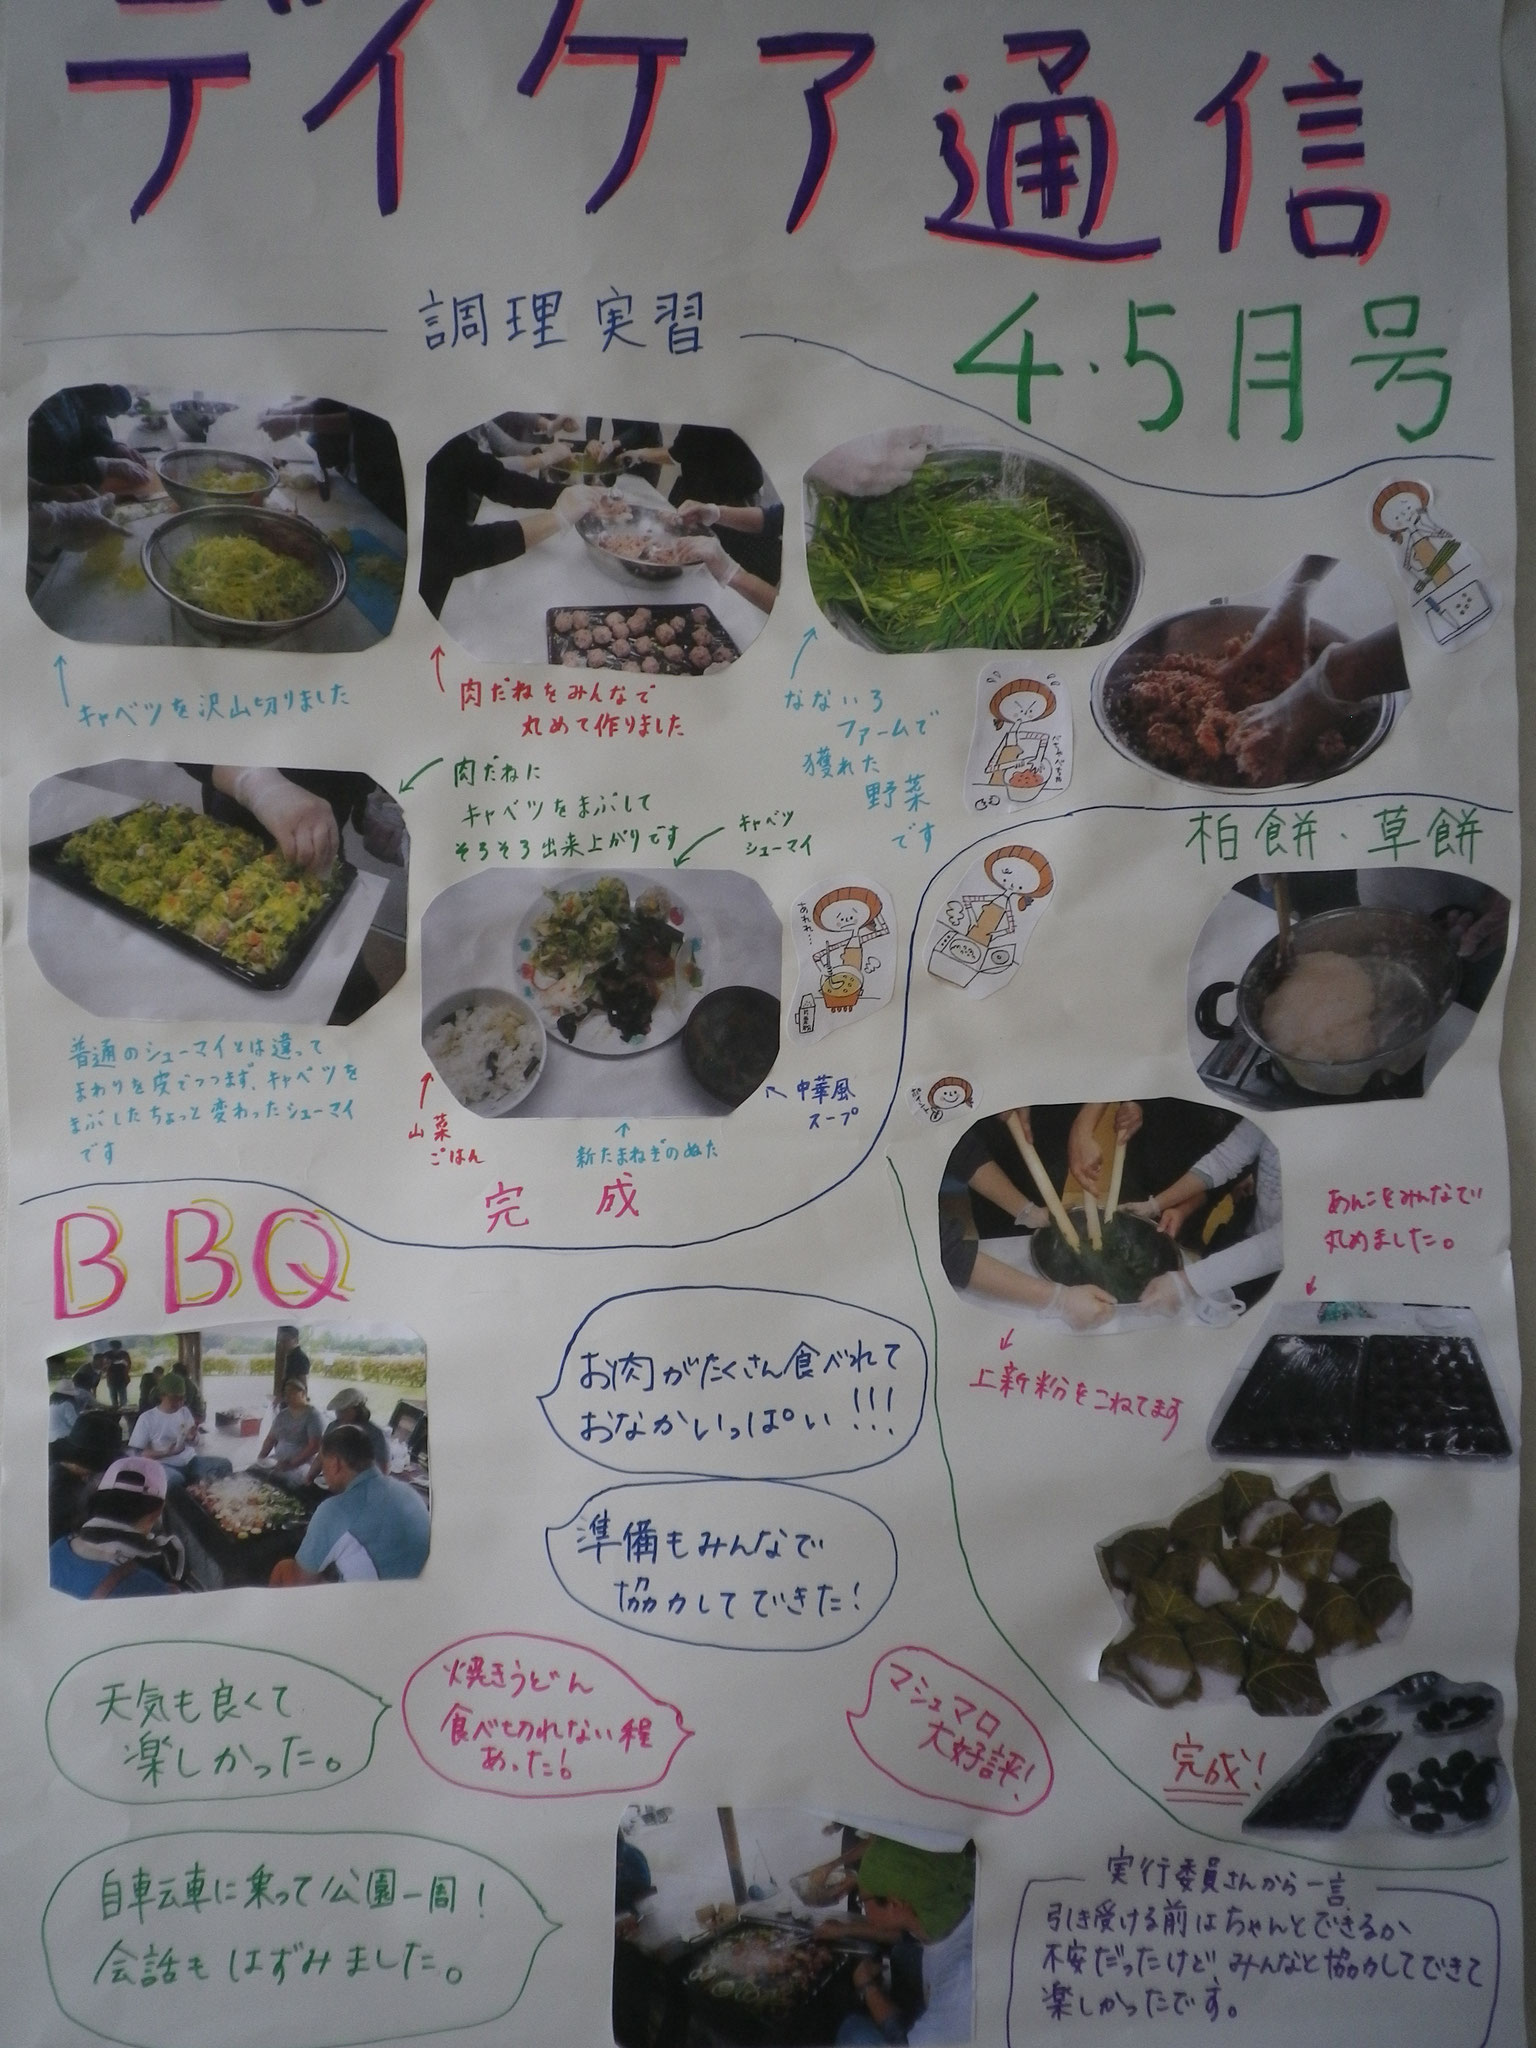 デイケア通信
4・5月号
調理実習
キャベツを沢山切りました
肉だねをみんなで
丸めて作りました
なないろ
ファームで
獲れた
野菜
です
肉だねに
キャベツをまぶして
そろそろ出来上がりです
キャベツ
シューマイ
あれれ…
普通のシューマイとは違って
まわりを皮でつつまず、キャベツを
まぶしたちょっと変わったシューマイ
です
山菜
ごはん
新たまねぎのぬた
中華風
スープ
完成
柏餅・草餅
あんこをみんなで
丸めました。
上新粉をこねてます
完成!
BBQ
お肉がたくさん食べれて
おなかいっぱい!!!
準備もみんなで
協力してできた!
天気も良くて
楽しかった。
焼きうどん
食べ切れない程
あった!
マシュマロ
大好評!
自転車に乗って公園一周!
会話もはずみました。
実行委員さんから一言
引き受ける前はちゃんとできるか
不安だったけど、みんなと協力してできて
楽しかったです。